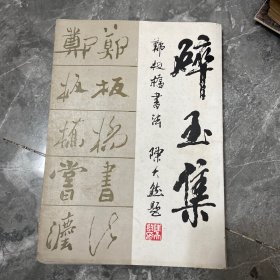 碎玉集
郑板桥书法
陈大羽题
鄭板橋書法
鄭板橋書法